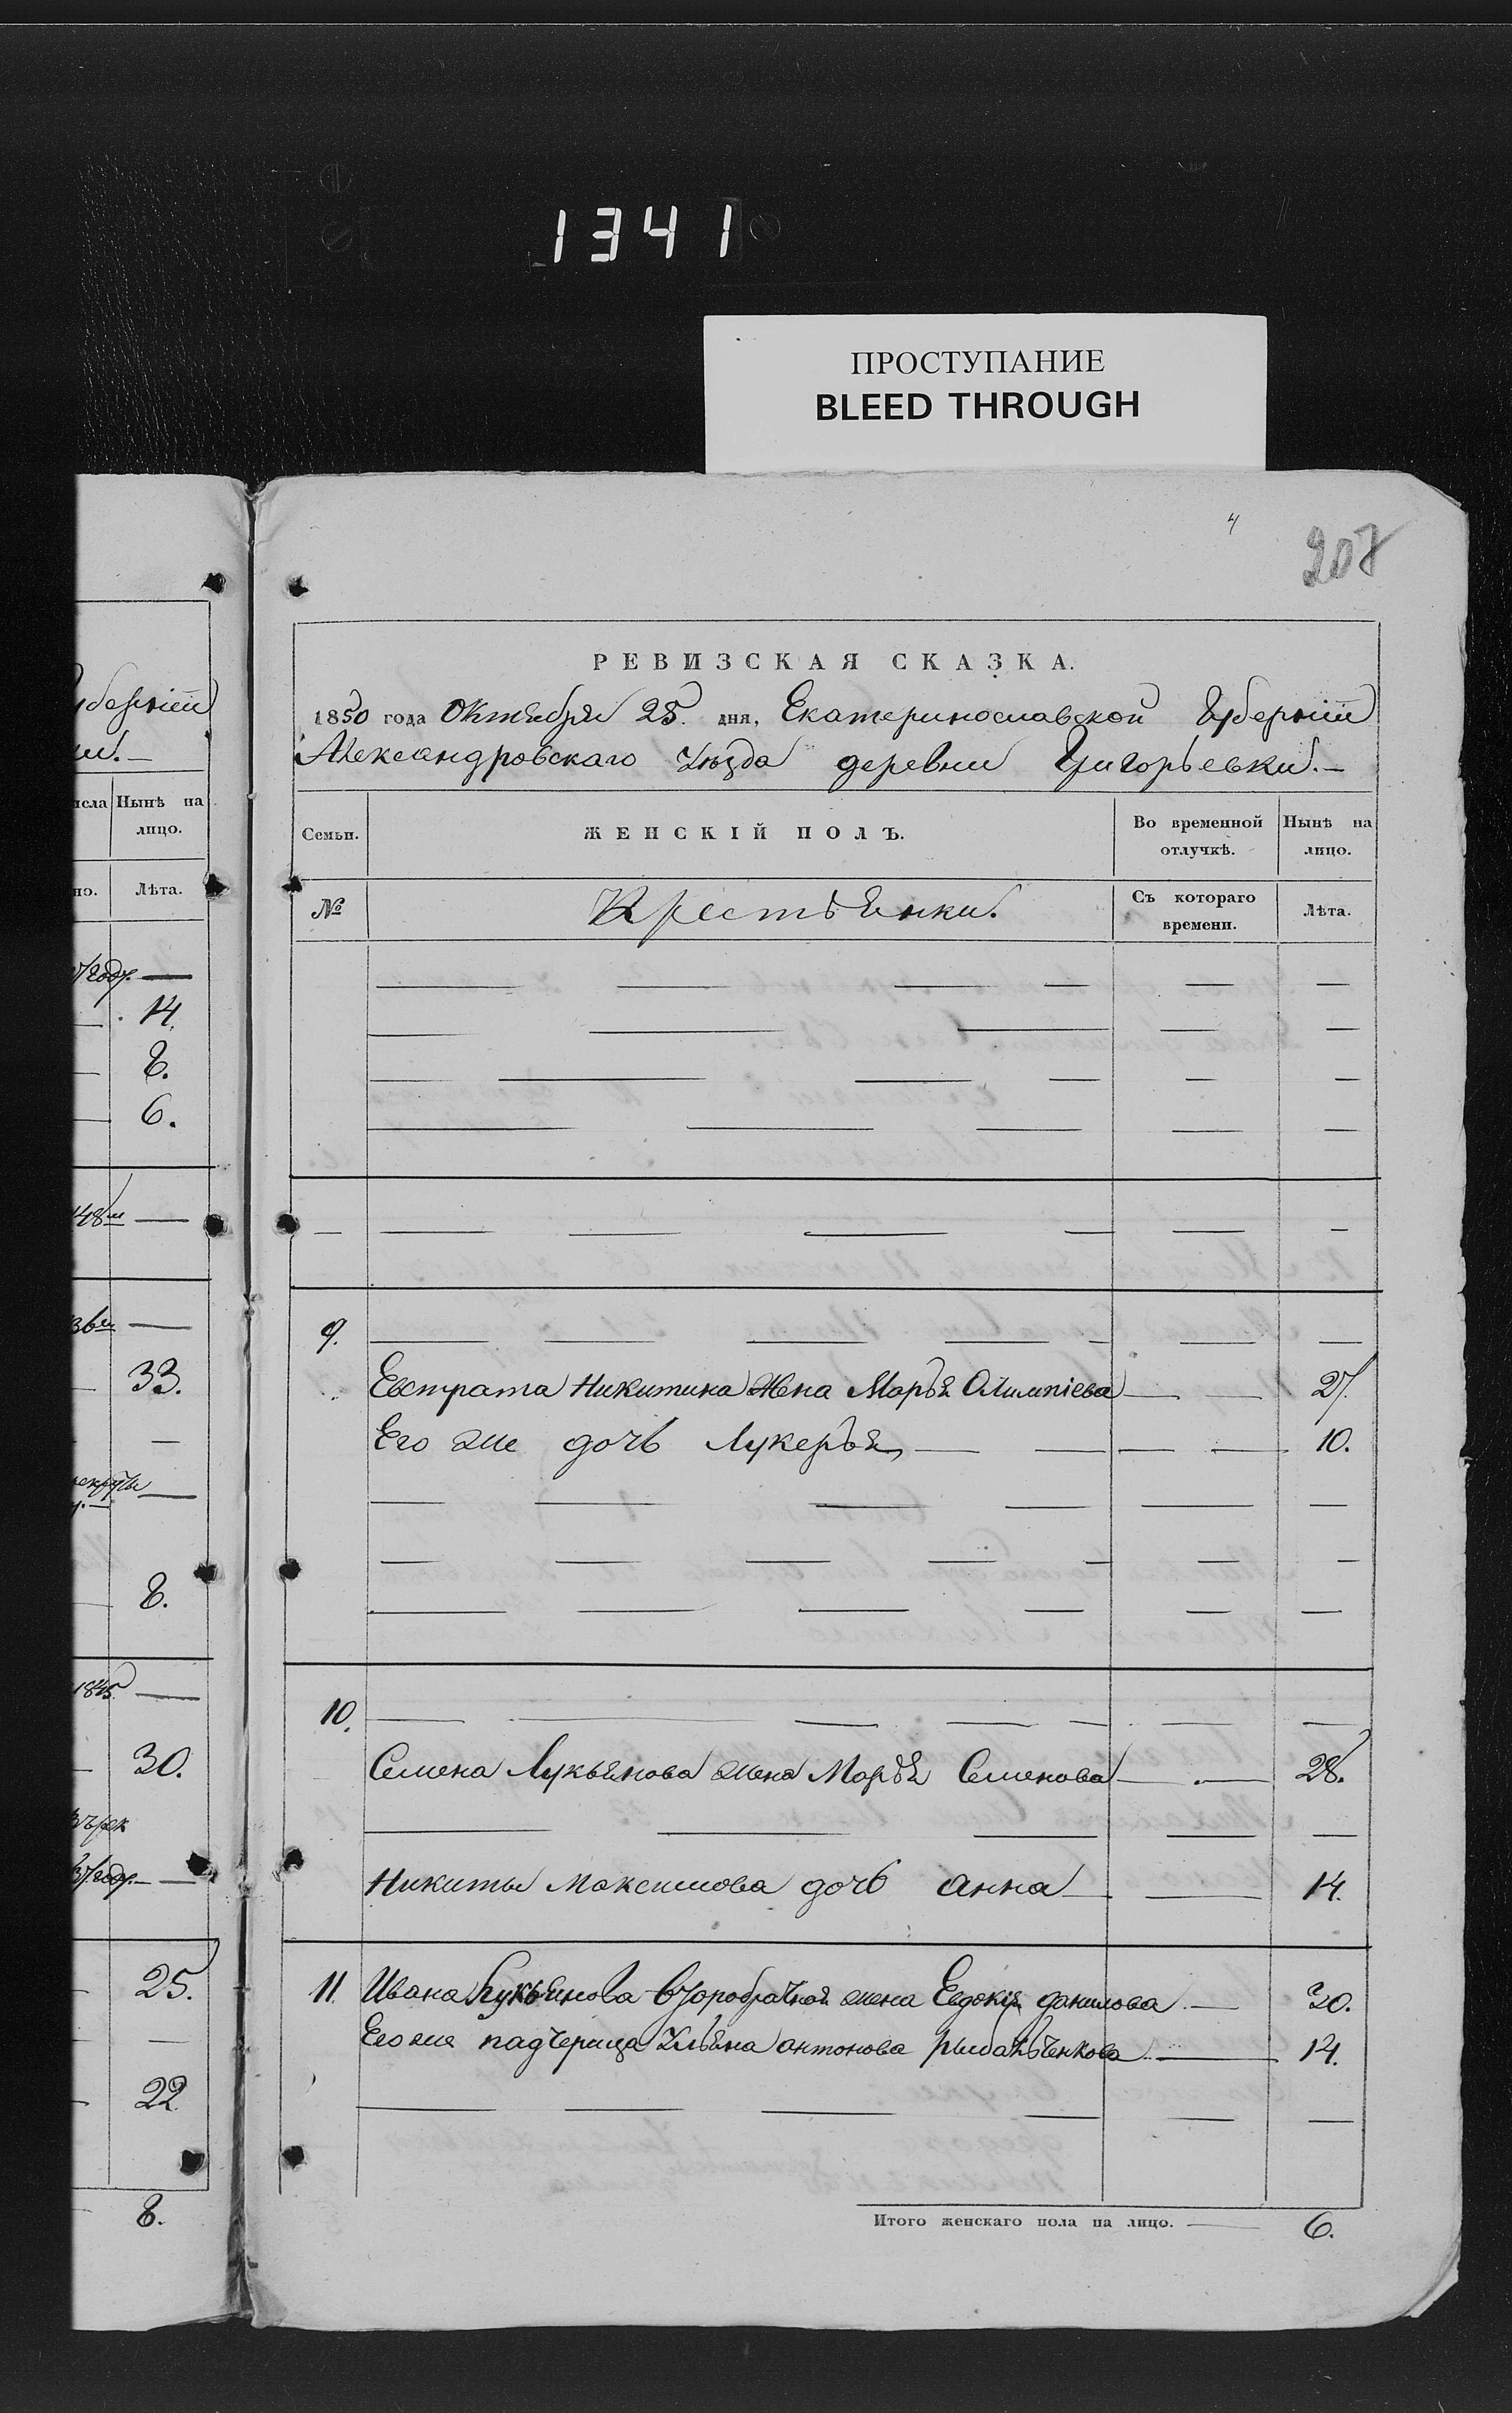 1341
ПРОСТУПАНИЕ
BLEED THROUGH
4
207
РЕВИЗСКАЯ СКАЗКА.
1850 года Октября 25. дня, Екатеринославской Губерніи
Александровскаго Уѣзда деревни Григорьевки. —
Семьи. ЖЕНСКІЙ ПОЛЪ. Во временной отлучкѣ. Нынѣ на лицо.
№ Крестьянки. Съ котораго времени. Лѣта.
9.
Евстрата Никитина жена Марья Олимпіева 27.
Его же дочь Лукерья 10.
10.
Семена Лукьянова жена Марья Семенова 28.
Никиты Максимова дочь Анна 14.
11. Ивана Лукьянова второбрачной жена Евдокія данилова 30.
Его же падчерица Ульяна антонова 14.
Итого женскаго пола на лицо. 6.
Губерніи
Нынѣ на
лицо.
Лѣта.
14.
8.
6.
33.
8.
1845
30.
25.
22
8.